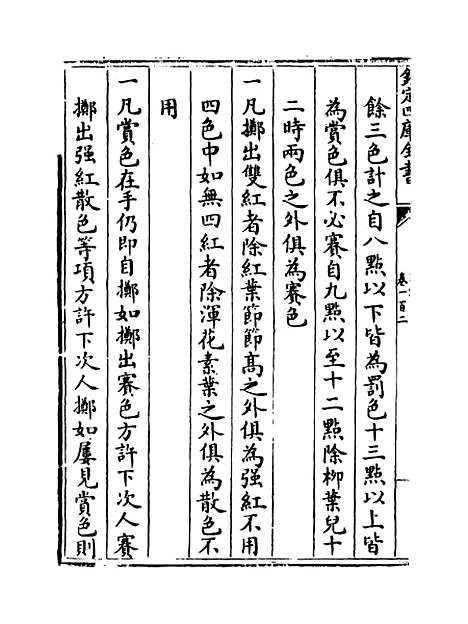 欽定四庫全書
卷一百二
餘三色計之自八點以下皆為罰色十三點以上皆
為賞色俱不必賽自九點以至十二點除柳葉兒十
二時兩色之外俱為賽色
一凡擲出雙紅者除紅葉節節高之外俱為強紅不用
四色中如無四紅者除渾花素葉之外俱為散色不
用
一凡賞色在手仍即自擲如擲出賽色方許下次人賽
擲出强紅散色等項方許下次人擲如屢見賞色則